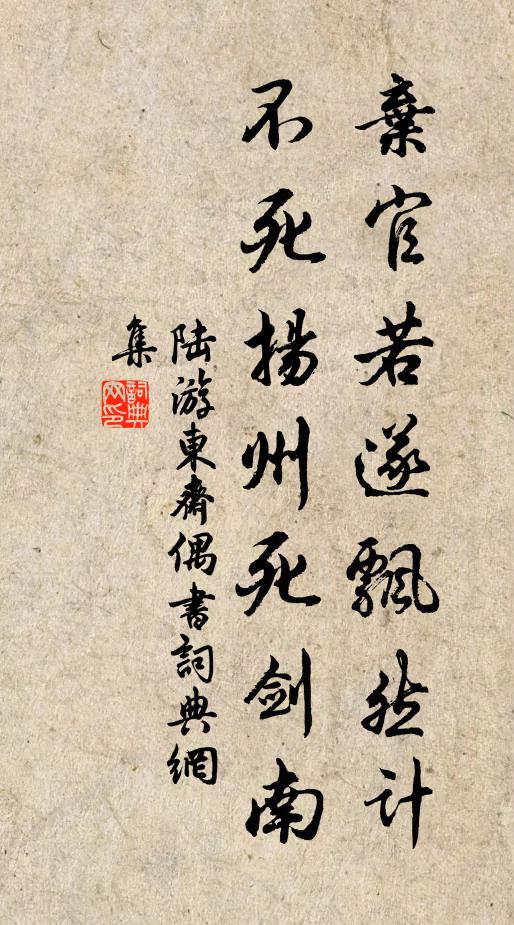 棄官若遂飄然計
不死揚州死劍南
陸游東齋偶書詞典網
集
詞典網印